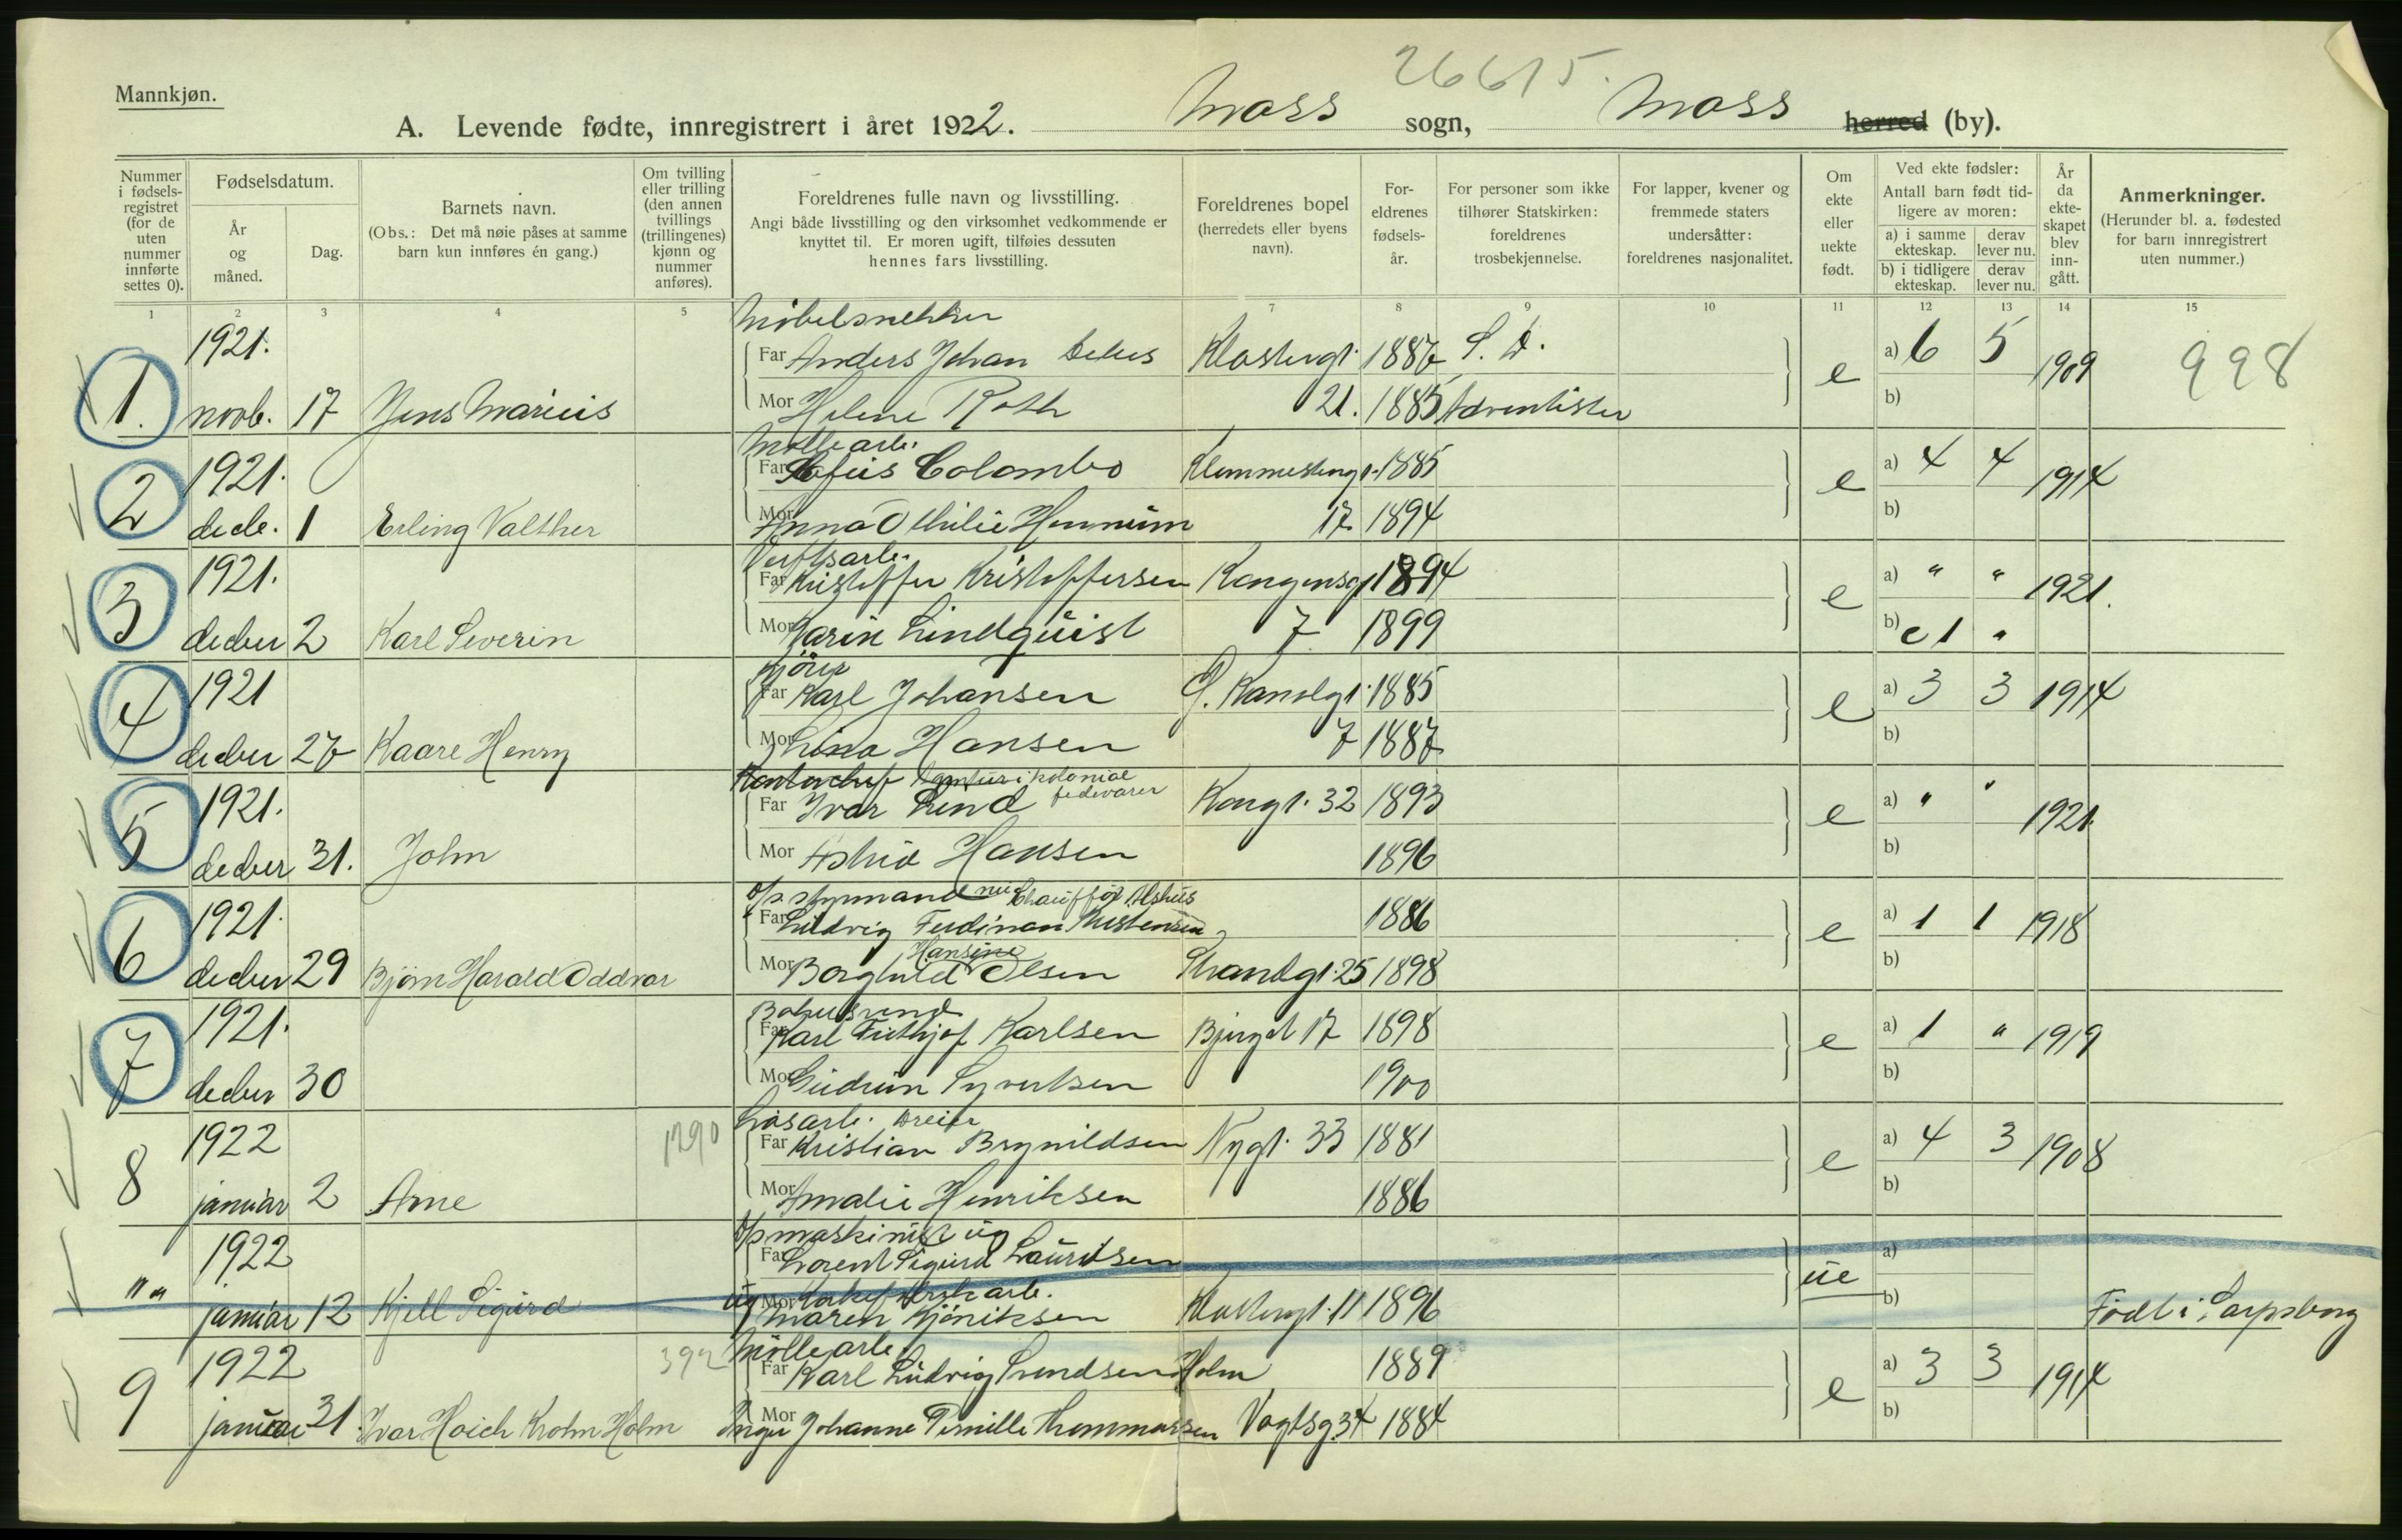 26615.
Mannkjøn.
A. Levende fødte, innregistrert i året 1922. Moss sogn, Moss herred (by).
Nummer i fødsels-registret (for de uten nummer innførte settes 0).
Fødselsdatum.
År og måned.
Dag.
Barnets navn.
(Obs.: Det må nøie påses at samme barn kun innføres én gang.)
Om tvilling eller trilling (den annen tvillings (trillingenes) kjønn og nummer anføres).
Foreldrenes fulle navn og livsstilling.
Angi både livsstilling og den virksomhet vedkommende er knyttet til. Er moren ugift, tilføies dessuten hennes fars livsstilling.
Foreldrenes bopel (herredets eller byens navn).
For-eldrenes fødsels-år.
For personer som ikke tilhører Statskirken: foreldrenes trosbekjennelse.
For lapper, kvener og fremmede staters undersåtter: foreldrenes nasjonalitet.
Om ekte eller uekte født.
Ved ekte fødsler: Antall barn født tid-ligere av moren:
a) i samme ekteskap. derav lever nu.
b) i tidligere ekteskap. derav lever nu.
År da ekte-skapet blev inn-gått.
Anmerkninger.
(Herunder bl. a. fødested for barn innregistrert uten nummer.)
1 2 3 4 5 7 8 9 10 11 12 13 14 15
Møbelsnekker
1921. Far Anders Johan Klostergt. 1887 S. D. a) 6 5 1909 998
1. novb. 17 Jens Marius Mor Helene Roth 21. 1885 Adventister e b)
Møllearb.
1921. Far Colombo 1885 a) 4 4 1914
2 decb. 1 Erling Valther Mor Anna Othilie Hennum 17 1894 e b)
Verftsarb.
1921. Far Kristoffer Kristoffersen Kongensg 1894 a) " " 1921.
3 decbr 2 Karl Severin Mor Karin Lindquist 7 1899 e b) 1 "
Kjører
1921 Far Karl Johansen G. Kanalgt. 1885 a) 3 3 1914
4 decbr 27 Kaare Henry Mor Hansen 7 1887 e b)
Kontorchef Agentur i kolonial fedevarer
1921. Far Ivar Lund Kongt. 32 1893 a) " " 1921.
5 decbr 31. John Mor Astrid Hansen 1896 e b)
styrmand nu Chauffør
1921. Far Ludvig Ferdinan Kristensen 1886 a) 1 1 1918
Hansine
6 decbr 29 Bjørn Harald Oddvar Mor Borghild Olsen Strandgt. 25 1898 e b)
1921. Far Karl Frithjof Karlsen 17 1898 a) 1 " 1919
7 decbr 30 Mor Gudrun Syvertsen 1900 e b)
arb. Dreier
1922 1290 Far Kristian Brynildsen Nygt. 33 1881 a) 4 3 1908
8 januar 2 Arne Mor Amalie Henriksen 1886 e b)
maskinist ug
1922 Far Lorent Sigurd Lauritsen a)
ug arb.
" " januar 12 Kjell Sigurd Mor Maren Kjøniksen Klostergt. 11 1896 ue b) Født i Sarpsborg
Møllearb.
1922 392 Far Karl Ludvig Svendsen Holm 1889 a) 3 3 1914
9 januar 31. Ivar Holm Mor Inga Johanne Pernille Thommassen Vogtsg. 34 1884 e b)